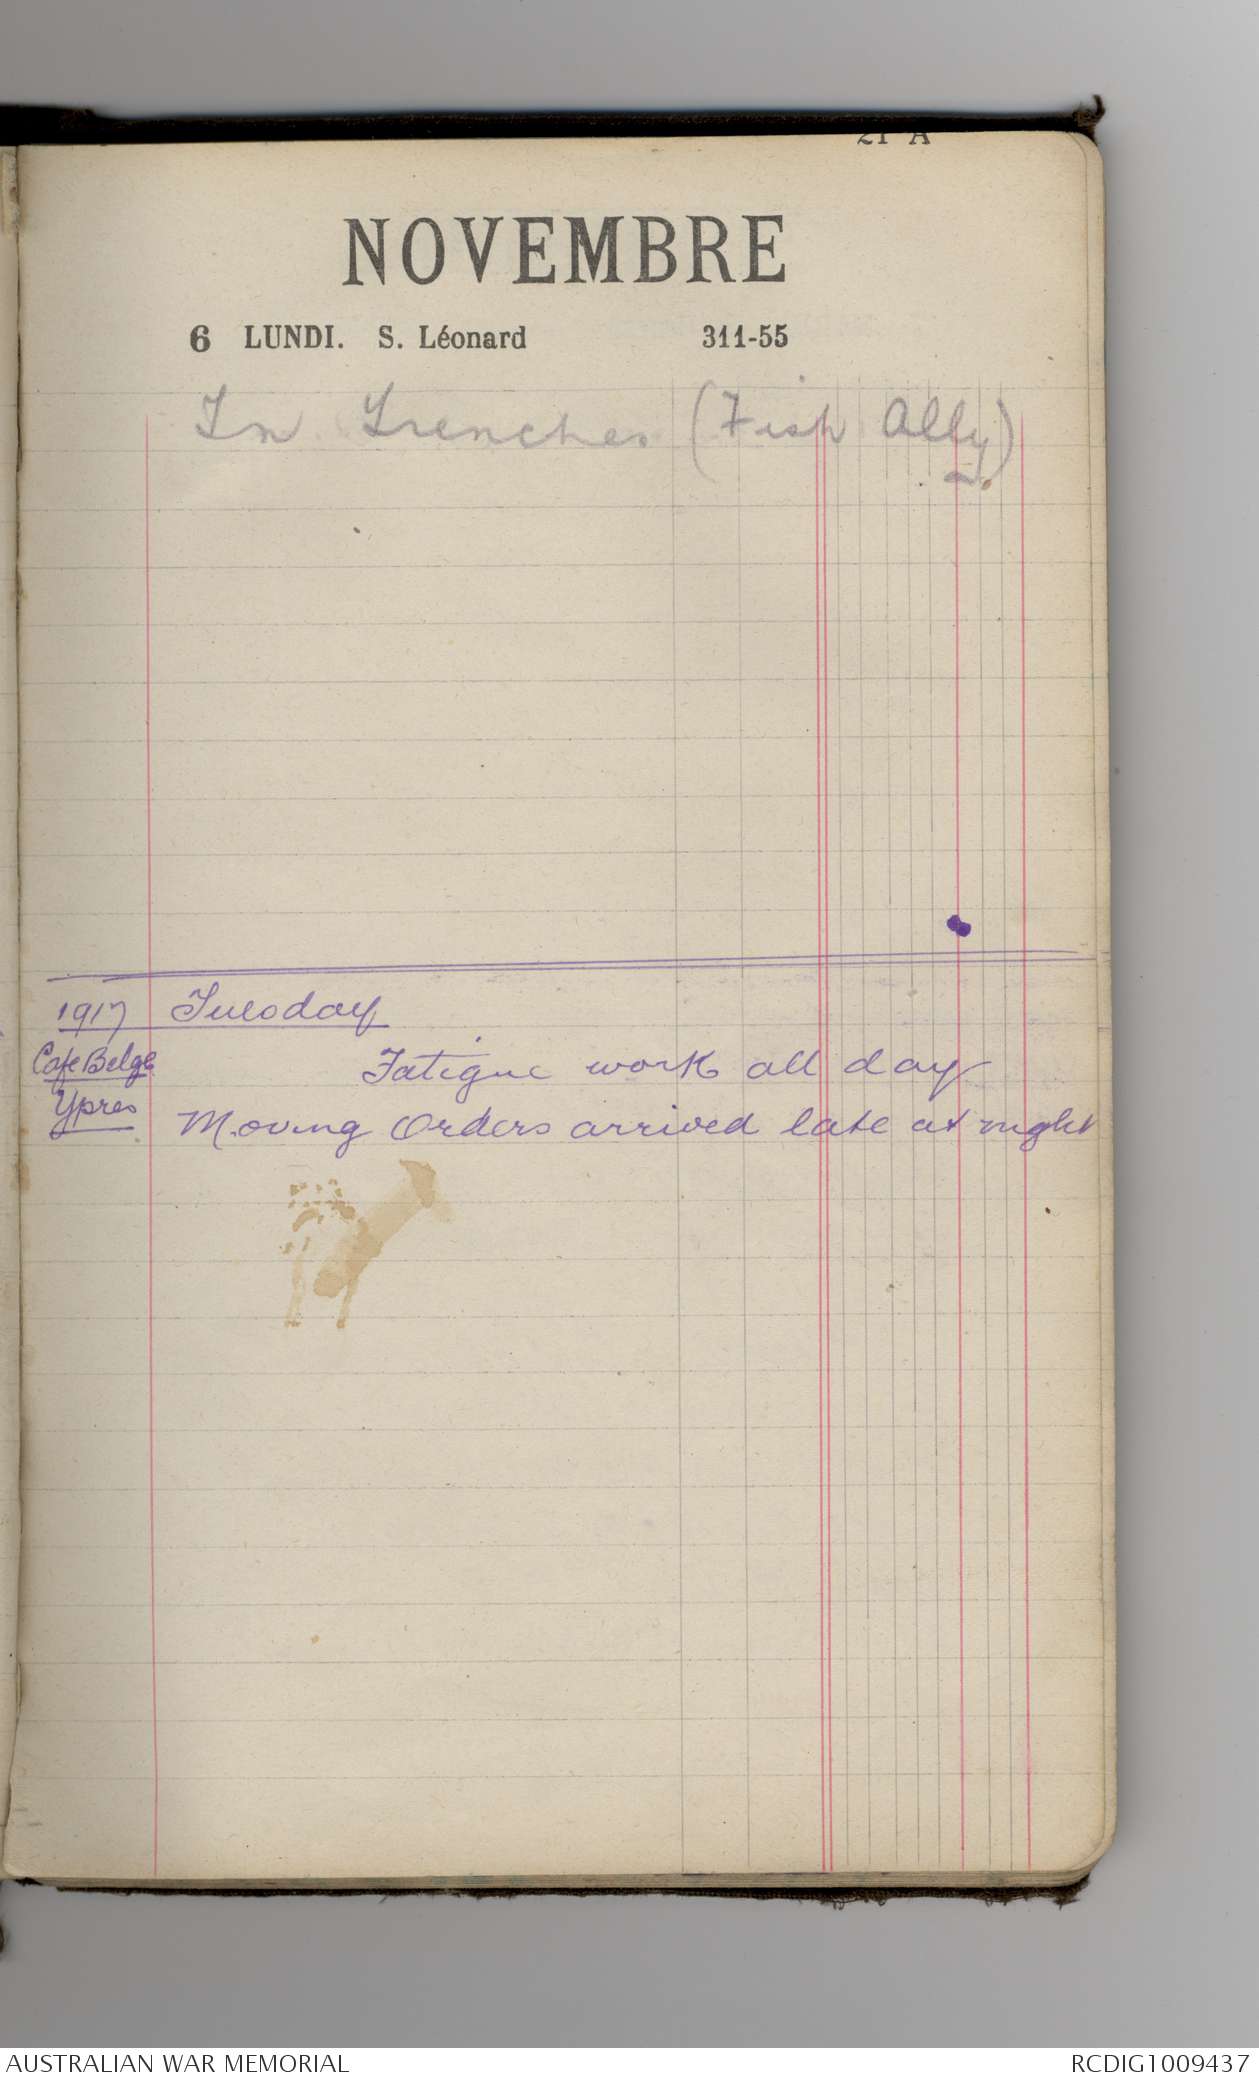 21 A
NOVEMBRE
6 LUNDI. S. Léonard 311-55
In Trenches (Fish Ally)
1917 Tuesday
Cafe Belge Fatigue work all day
Ypres Moving Orders arrived late at night
AUSTRALIAN WAR MEMORIAL RCDIG1009437